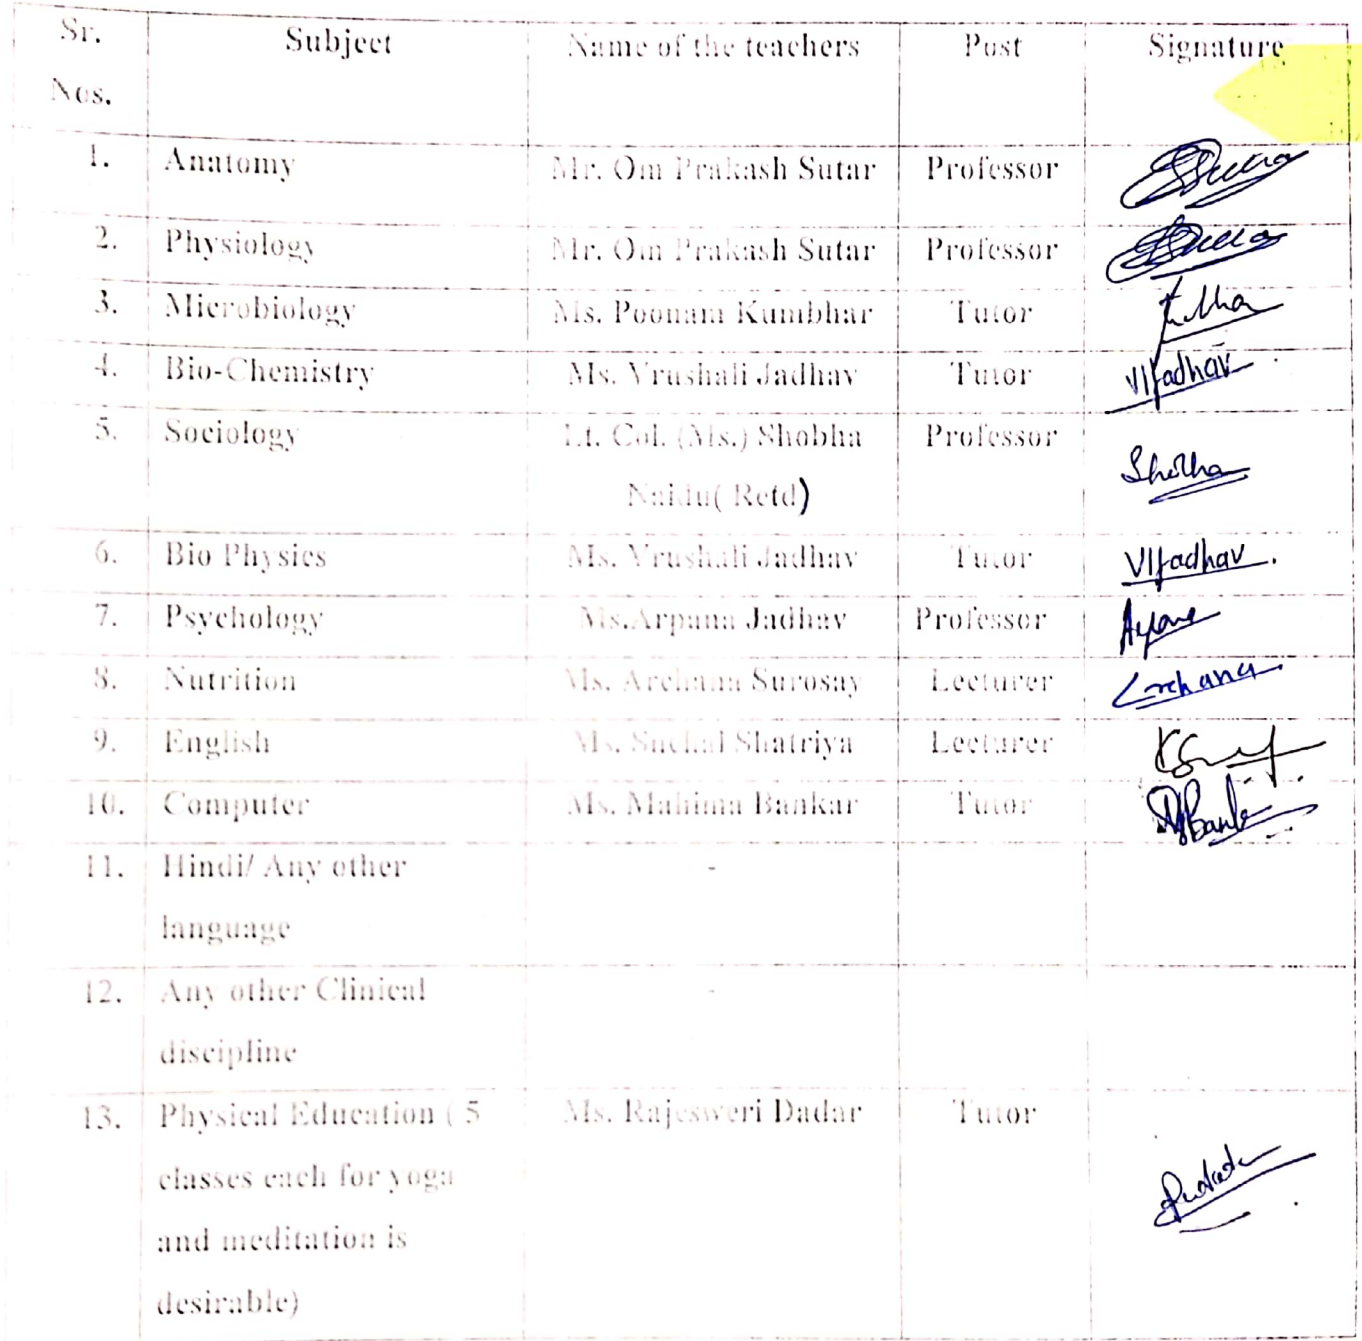 Sr. Subject Name of the teachers Post Signature
Nos.
1. Anatomy Mr. Om Prakash Sutar Professor
2. Physiology Mr. Om Prakash Sutar Professor
3. Microbiology Ms. Poonam Kumbhar Tutor
4. Bio-Chemistry Ms. Vrushali Jadhav Tutor VIJadhav
5. Sociology Lt. Col. (Ms.) Shobha Professor
Naidu( Retd) Shobha
6. Bio Physics Ms. Vrushali Jadhav Tutor VIJadhav.
7. Psychology Ms.Arpana Jadhav Professor
8. Nutrition Ms. Archana Surosay Lecturer Archana
9. English Ms. Snehal Shatriya Lecturer
10. Computer Ms. Mahima Bankar Tutor
11. Hindi/ Any other -
language
12. Any other Clinical -
discipline
13. Physical Education ( 5 Ms. Rajesweri Dadar Tutor
classes each for yoga
and meditation is
desirable)